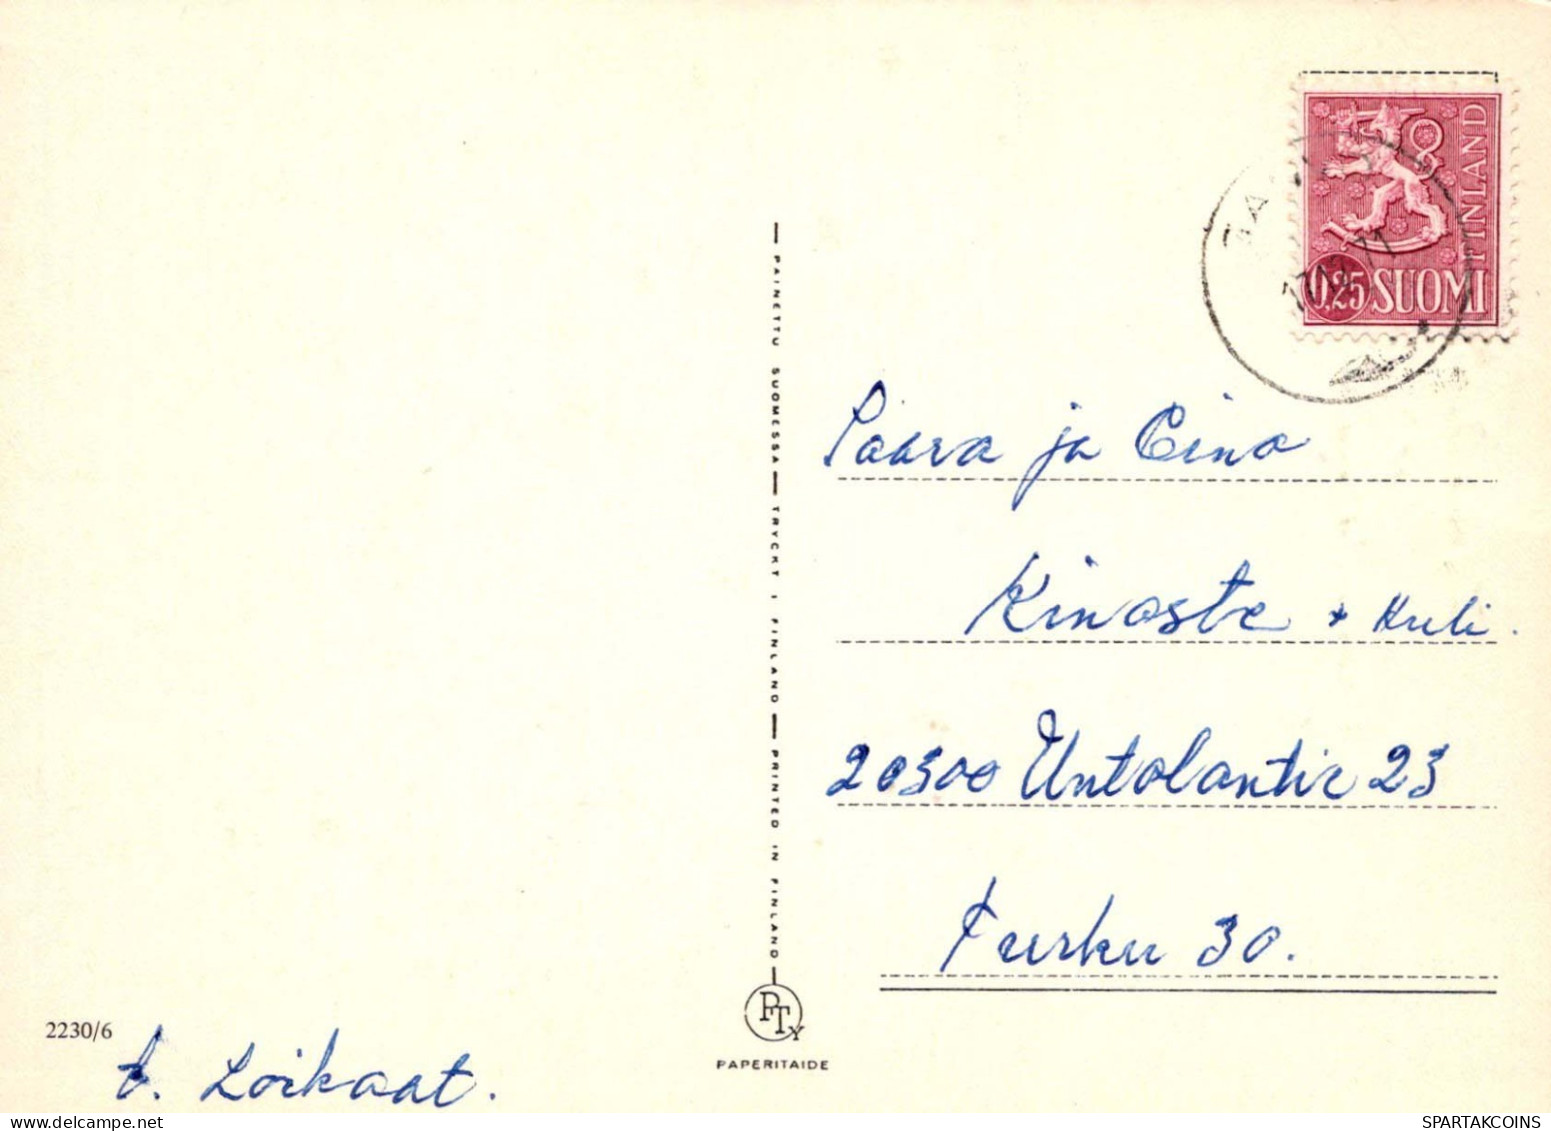 FINLAND
0,25 SUOMI
71
Paava ja Eino
Kinoste + Kuli.
20300 Untolantie 23
Turku 30.
PAINETTU SUOMESSA — TRYCKT I FINLAND — PRINTED IN FINLAND
PTY
PAPERITAIDE
2230/6
t. Loikaat.
SPARTAKCOINS